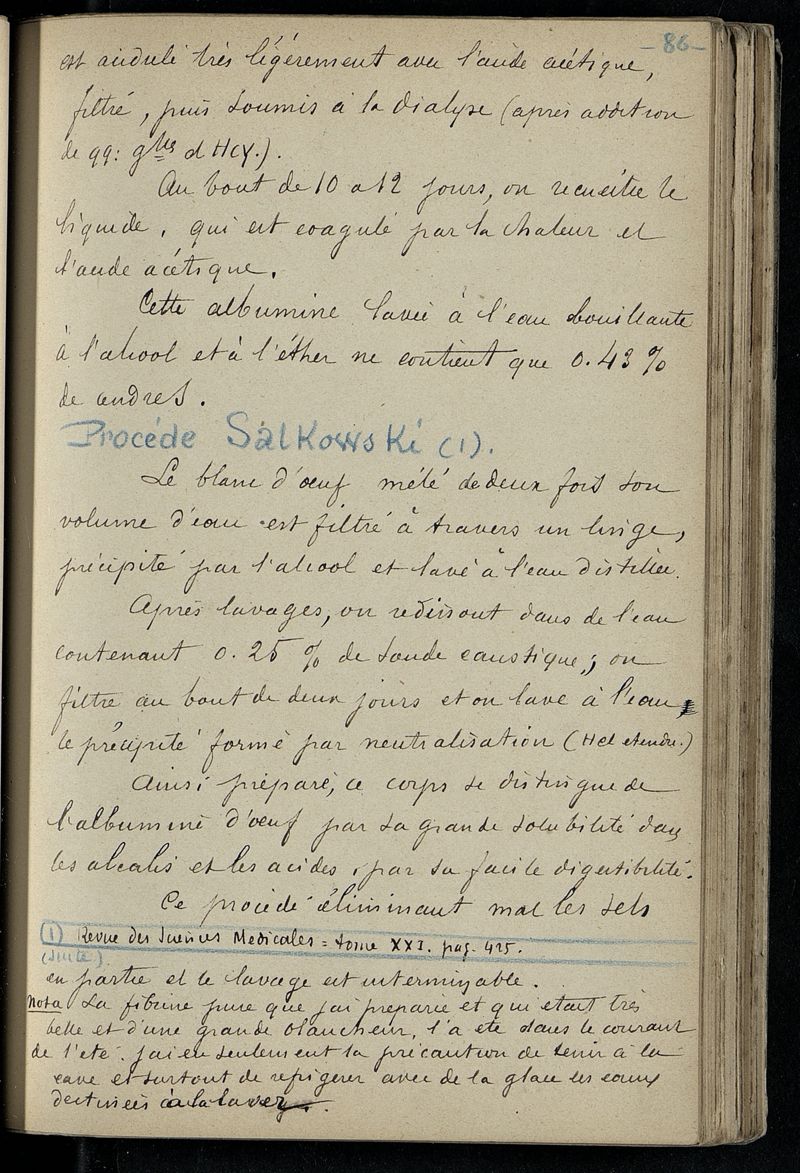 -86-
est acidulé très légèrement avec l'acide acétique,
filtré, puis soumis à la dialyse (après addition
de qq: gttes d HCy.).
Au bout de 10 a 12 jours, on recueille le
liquide, qui est coagulé par la chaleur et
l'acide acétique.
Cette albumine lavée à l'eau bouillante
à l'alcool et à l'éther ne contient que 0.43 %
de cendres.
Procéde Salkowski (1).
Le blanc d'œuf mélé de deux fois son
volume d'eau est filtré à travers un linge,
précipité par l'alcool et lavé à l'eau distillée.
Après lavages, on redissout dans de l'eau
contenant 0.25 % de soude caustique; on
filtre au bout de deux jours et on lave à l'eau,
le précipité formé par neutralisation (Hcl etendu.)
Ainsi préparé, ce corps se distingue de
l'albumine d'œuf par sa grande solubilité dans
les alcalis et les acides, par sa facile digestibilité.
Ce procédé éliminant mal les sels
(1) Revue des Sciences Medicales = tome XXI. pag. 425.
(suite)
en partie et le lavage est interminable.
Nota La fibrine pure que j'ai préparée et qui etait très
belle et d'une grande blancheur, l'a eté dans le courant
de l'eté. j'ai eu seulement la précaution de tenir à la
cave et surtout de refrigérer avec de la glace les eaux
destinées à la laver.